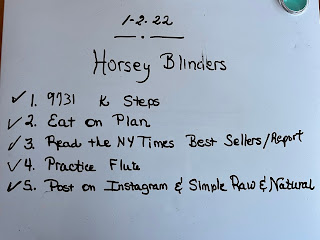 1-2.22
Horsey Blinders
✓ 1. 9731 K Steps
✓ 2. Eat on Plan
✓ 3. Read the NY Times Best Sellers/Report
✓ 4. Practice Flute
✓ 5. Post on Instagram & Simple Raw & Natural